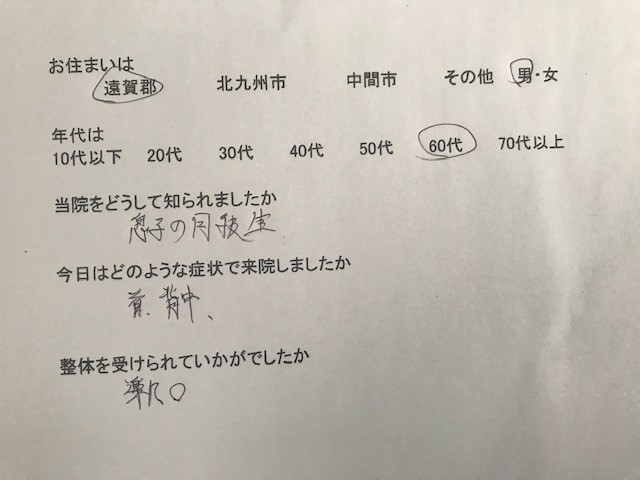 お住まいは
遠賀郡 北九州市 中間市 その他 男・女
年代は
10代以下 20代 30代 40代 50代 60代 70代以上
当院をどうして知られましたか
息子の同級生
今日はどのような症状で来院しましたか
首、背中、
整体を受けられていかがでしたか